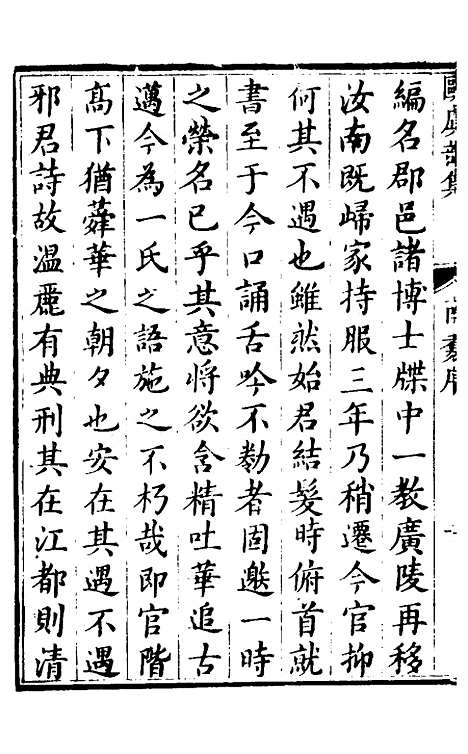 編名郡邑諸博士牒中一教廣陵再移
汝南既歸家持服三年乃稍遷今官抑
何其不遇也雖然始君結髮時俯首就
書至于今口誦舌吟不勌者固邀一時
之榮名已乎其意將欲含精吐華追古
邁今為一氏之語施之不朽哉即官階
高下猶蕣華之朝夕也安在其遇不遇
邪君詩故温麗有典刑其在江都則清